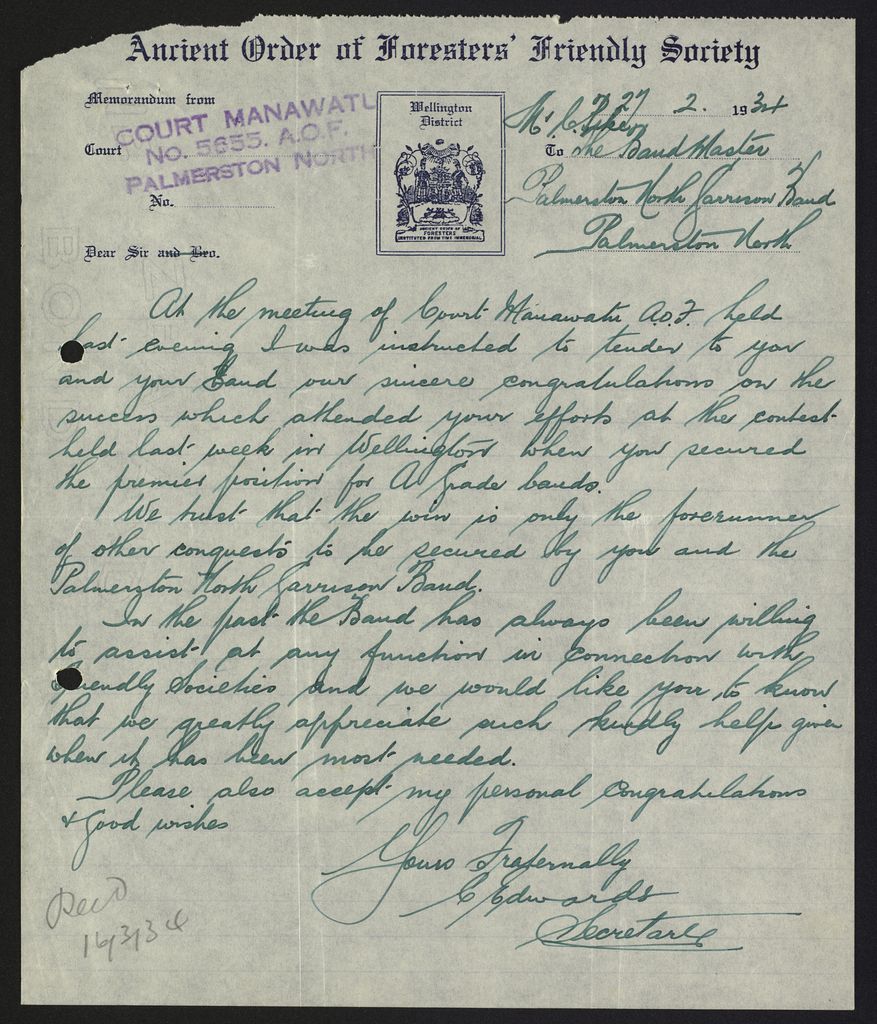 Ancient Order of Foresters' Friendly Society
Memorandum from
COURT MANAWATU
NO. 5655. A.O.F.
PALMERSTON NORTH
Court
No.
Wellington
District
ANCIENT ORDER OF
FORESTERS
INSTITUTED FROM TIME IMMEMORIAL
27 2. 1934
Mr C
To The Band Master
Palmerston North Garrison Band
Palmerston North
Dear Sir and Bro.
At the meeting of Court Manawatu A.O.F. held
last evening I was instructed to tender to you
and your Band our sincere congratulations on the
success which attended your efforts at the contest
held last week in Wellington when you secured
the premier position for A Grade bands.
We trust that the win is only the forerunner
of other conquests to be secured by you and the
Palmerston North Garrison Band.
In the past the Band has always been willing
to assist at any function in connection with
Friendly Societies and we would like you to know
that we greatly appreciate such kindly help given
when it has been most needed.
Please also accept my personal congratulations
& good wishes
Yours Fraternally
C Edwards
Secretary
Recd
16/3/34